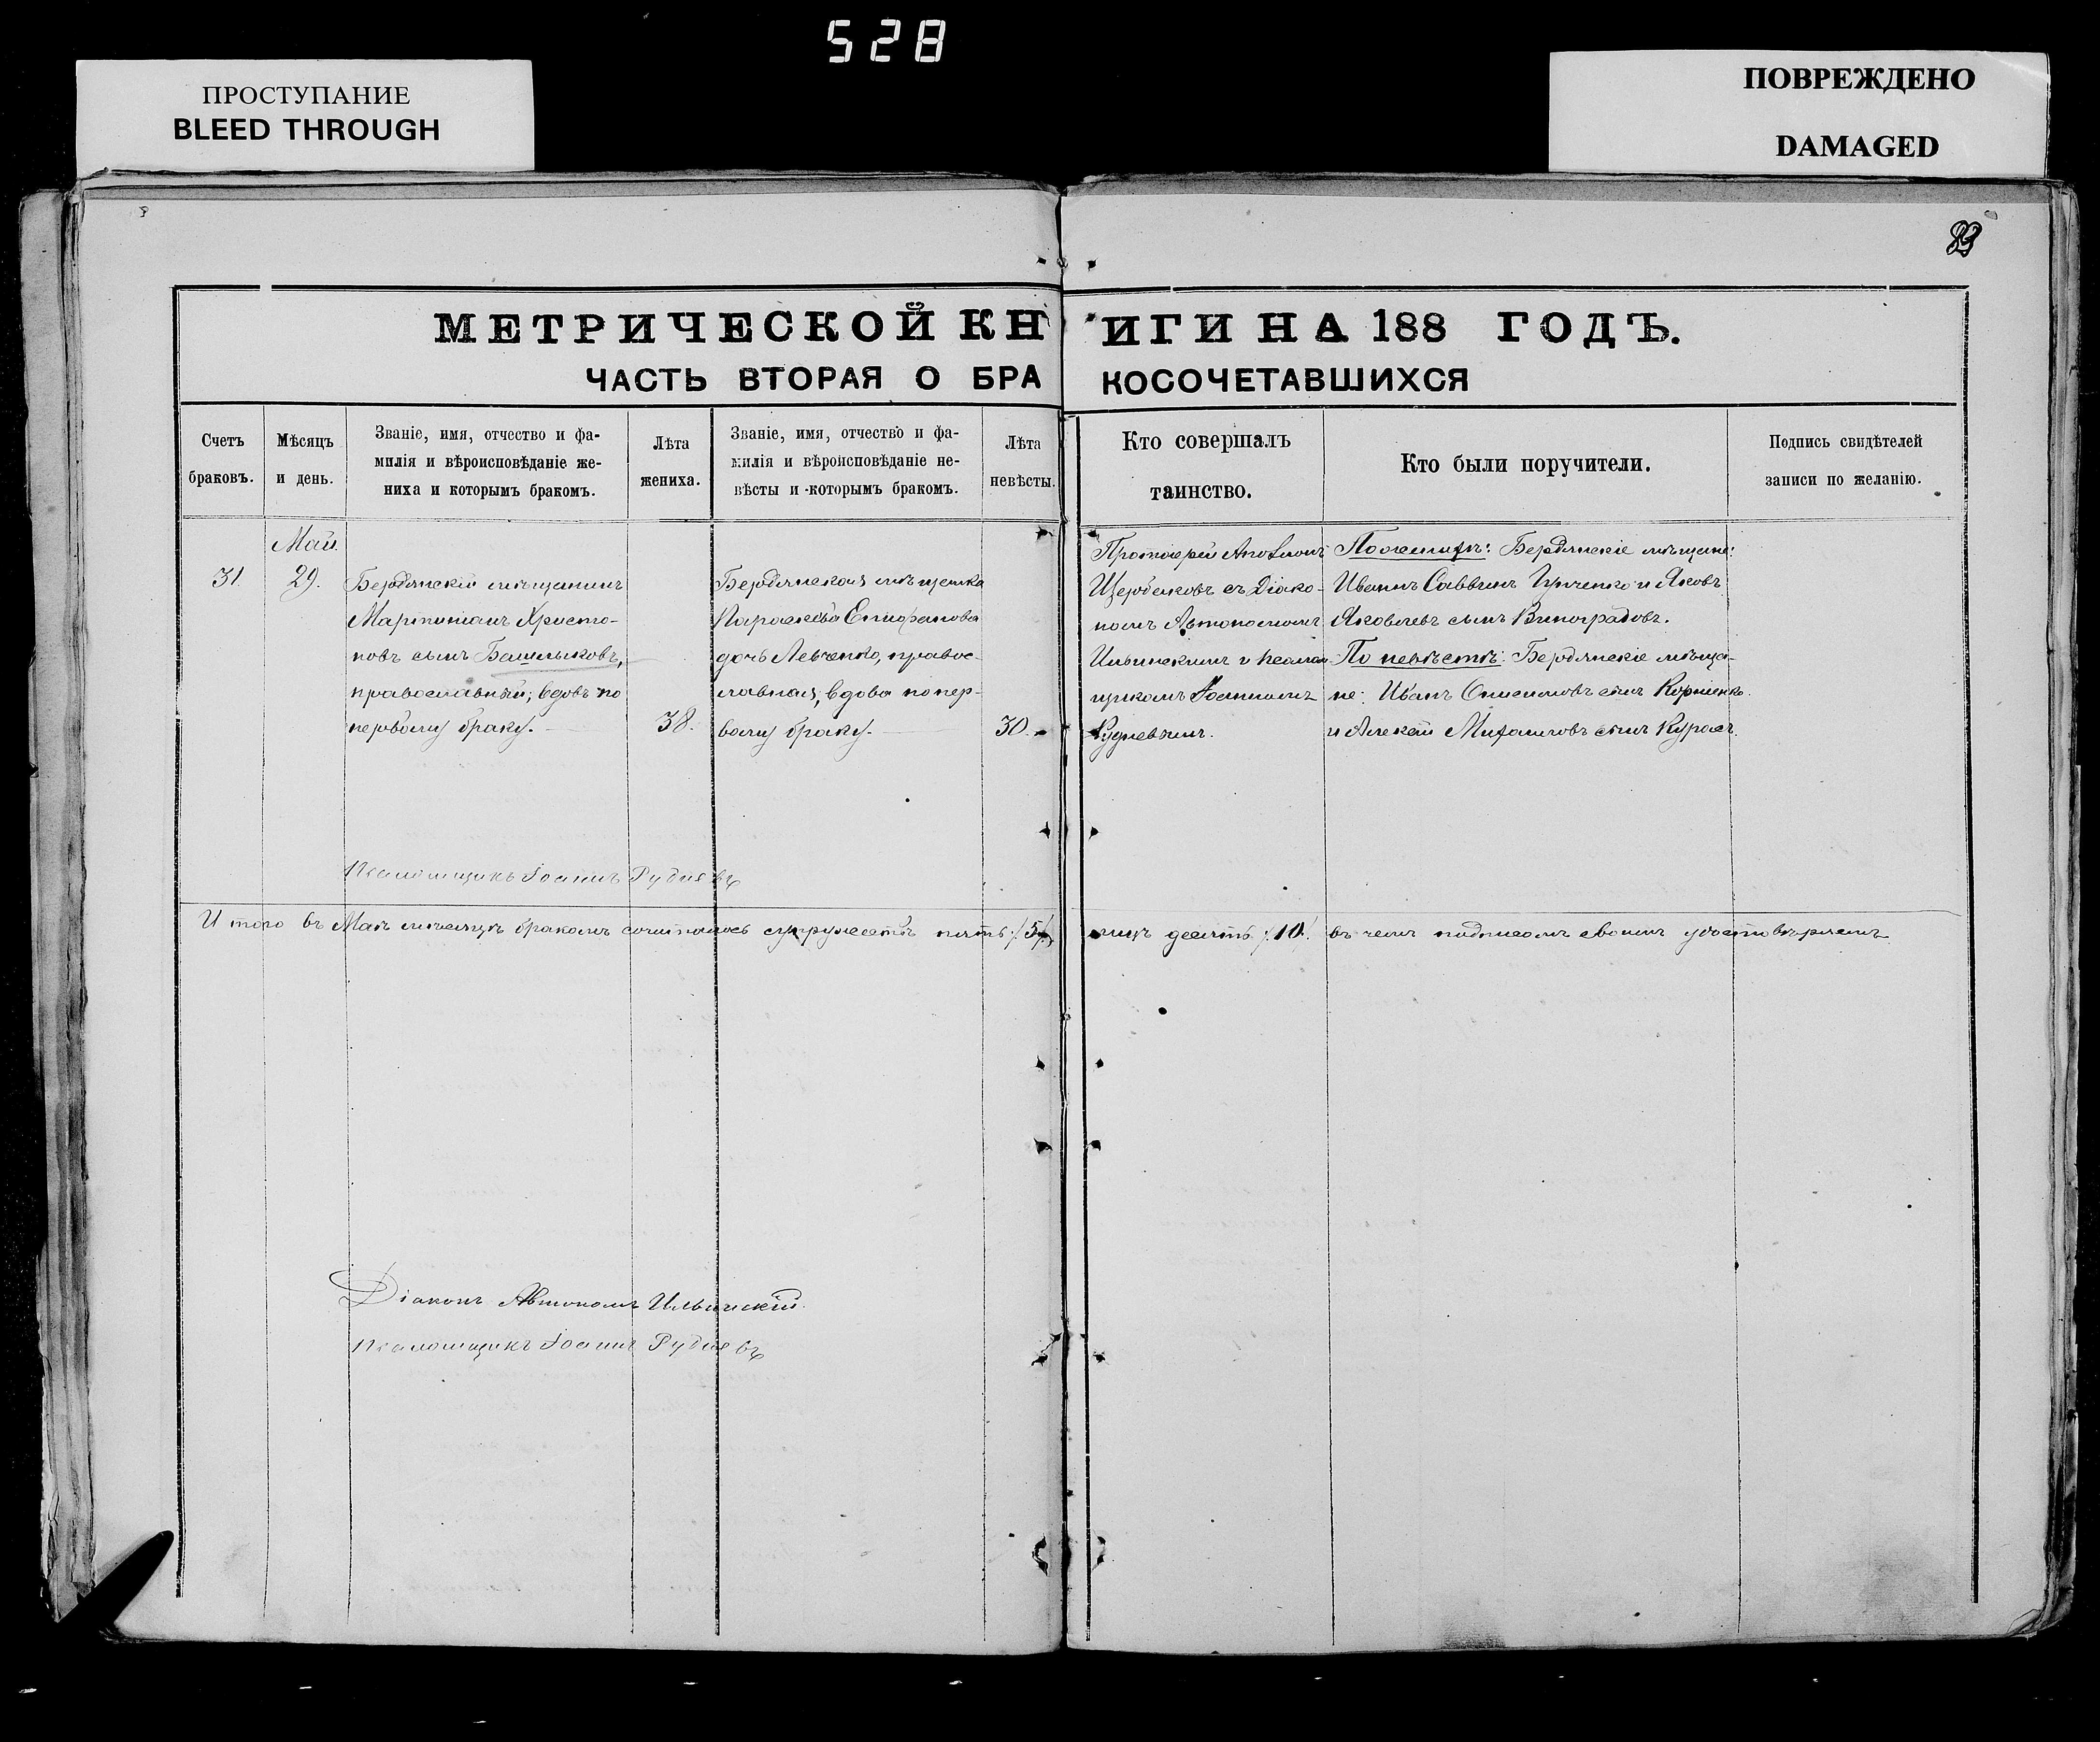 528
ПРОСТУПАНИЕ
BLEED THROUGH
ПОВРЕЖДЕНО
DAMAGED
МЕТРИЧЕСКОЙ КНИГИ НА 188 ГОДЪ.
ЧАСТЬ ВТОРАЯ О БРАКОСОЧЕТАВШИХСЯ
Счетъ
браковъ.
Мѣсяцъ
и день.
Званіе, имя, отчество и фа-
милія и вѣроисповѣданіе же-
ниха и которымъ бракомъ.
Лѣта
жениха.
Званіе, имя, отчество и фа-
милія и вѣроисповѣданіе не-
вѣсты и которымъ бракомъ.
Лѣта
невѣсты.
Кто совершалъ
таинство.
Кто были поручители.
Подпись свидѣтелей
записи по желанію.
31.
Май
29.
Бердянскій мѣщанинъ
Мартиніанъ Христо-
новъ сынъ Башлыковъ,
православный; вдовъ по
первому браку.
38.
Бердянская мѣщанка
Параскева Епифанова
дочь Левченко, правос-
лавная; вдова по пер-
вому браку.
30.
Протоіерей
Щербаковъ съ Діако-
номъ Автономомъ
Ильинскимъ и псалом
щикомъ Іоанномъ
Рудневымъ.
По женихѣ: Бердянскіе мѣщане:
Иванъ Саввинъ и Яковъ
Яковлевъ сынъ Виноградовъ.
По невѣстѣ: Бердянскіе мѣща-
не: Иванъ Онисимовъ сынъ Корніенко
и Алексѣй Михаиловъ сынъ
Псаломщикъ Іоаннъ Рудневъ
Итого въ Маѣ мѣсяцѣ бракомъ сочеталось супружествъ пять /5/, лицъ десять /10/ въ чемъ подписомъ своимъ удостовѣряемъ
Діаконъ Автономъ Ильинскій.
Псаломщикъ Іоаннъ Рудневъ